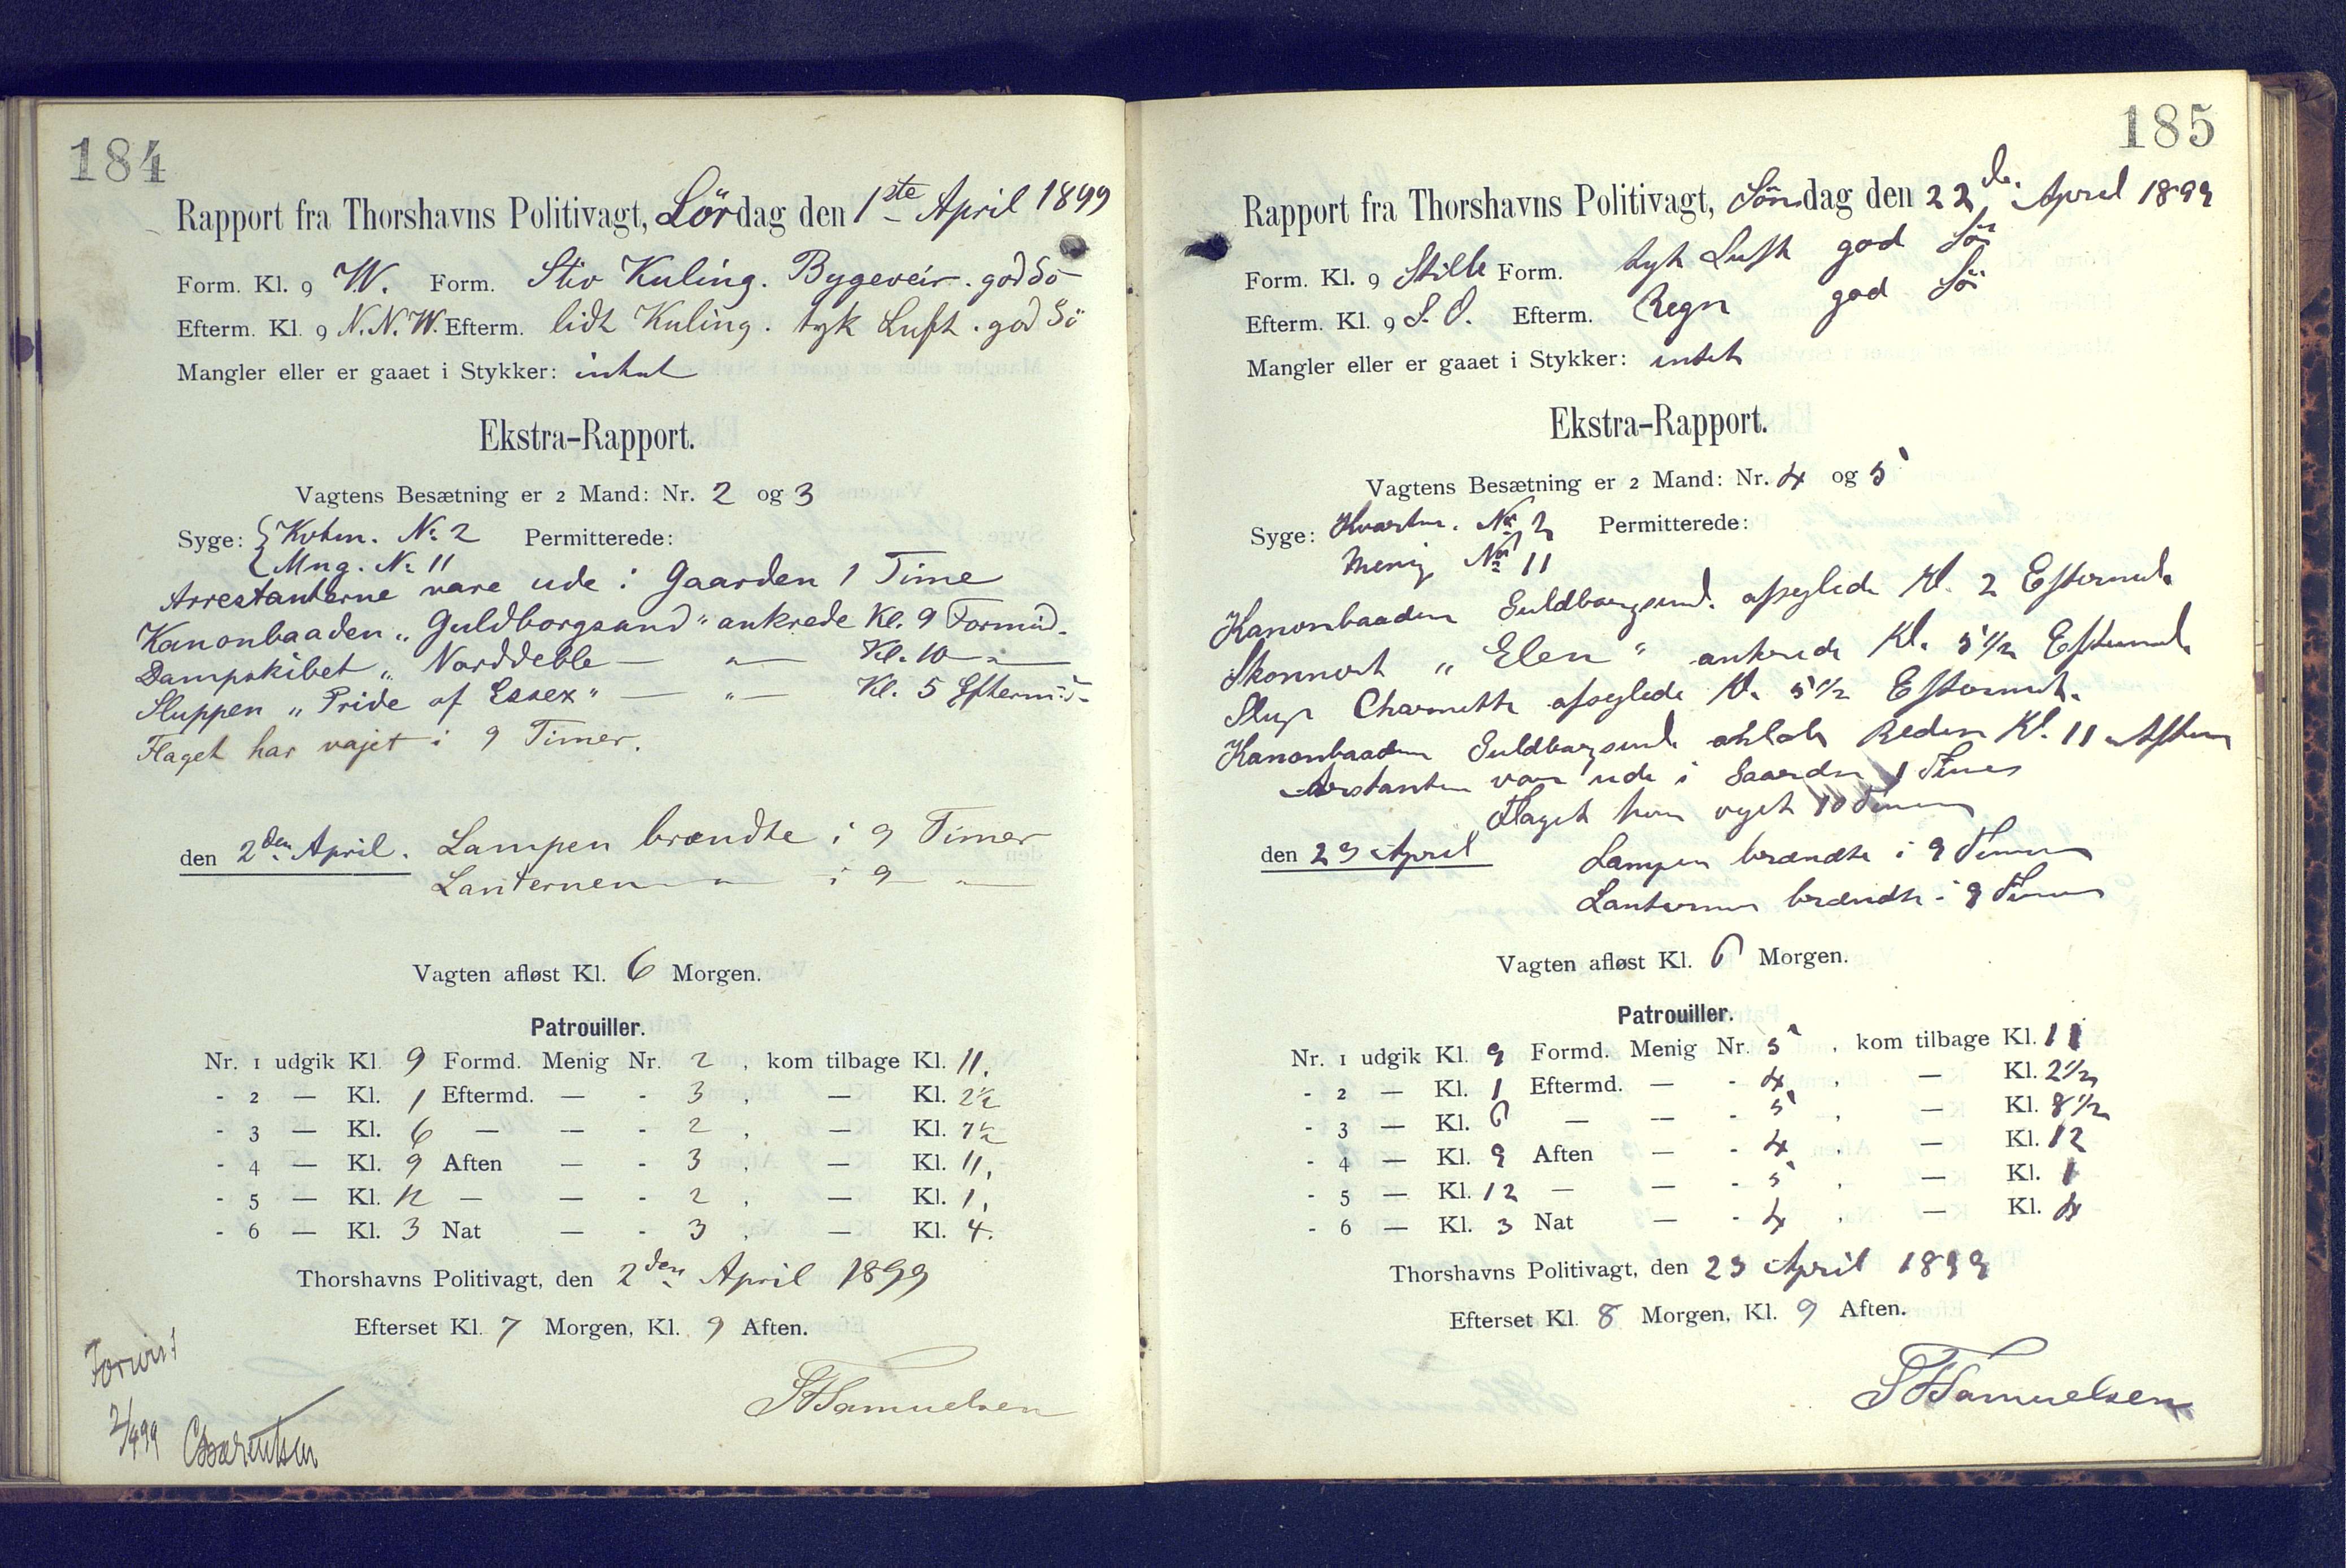 184
Rapport fra Thorshavns Politivagt, Lördag den 1ste April 1899
Form. Kl. 9 W. Form. Stiv Kuling. Bygeveir. god Sö
Efterm. Kl. 9 N.N.W. Efterm. lidt Kuling. tyk Luft. god Sö
Mangler eller er gaaet i Stykker: intet
Ekstra-Rapport.
Vagtens Besætning er 2 Mand: Nr. 2 og 3
Syge: Kvtm. No 2 Permitterede:
Mng. No 11
Arrestanterne vare ude i Gaarden 1 Time
Kanonbaaden „Guldborgsund" ankrede Kl. 9 Formid.
Dampskibet „ Norddeble — „ — Kl. 10 — „ —
Sluppen „ Pride of Essex" — „ — Kl. 5 Eftermid.
Flaget har vajet i 9 Timer.
den 2den April. Lampen brændte i 9 Timer
Lanternen — „ — i 9 — „ —
Vagten afløst Kl. 6 Morgen.
Patrouiller.
Nr. 1 udgik Kl. 9 Formd. Menig Nr. 2, kom tilbage Kl. 11.
- 2 — Kl. 1 Eftermd. — - 3, — Kl. 2½
- 3 — Kl. 6 — — - 2, — Kl. 7½
- 4 — Kl. 9 Aften — - 3, — Kl. 11.
- 5 — Kl. 12 — — - 2, — Kl. 1.
- 6 — Kl. 3 Nat — - 3, — Kl. 4.
Thorshavns Politivagt, den 2den April 1899
Efterset Kl. 7 Morgen, Kl. 9 Aften.
SFSamuelsen
Forvist
2/4 99 CBærentsen
185
Rapport fra Thorshavns Politivagt, Söndag den 22de April 1899
Form. Kl. 9 Stille Form. tyk Luft god Sö
Efterm. Kl. 9 S.O. Efterm. Regn god Sö
Mangler eller er gaaet i Stykker: intet
Ekstra-Rapport.
Vagtens Besætning er 2 Mand: Nr. 4 og 5
Syge: Kvartm. No 2 Permitterede:
Menig No 11
Kanonbaaden Guldborgsund. afseglede Kl. 2 Eftermid.
Skonnort „ Elen " ankrede Kl. 5 1/2 Eftermid.
Slup Charmette afseglede Kl. 5 1/2 Eftermid.
Kanonbaaden Guldborgsund Reden Kl. 11 Aften
Arstanten var ude i Gaarden 1 Time
Flaget har vajet 10 Timer
den 23 April Lampen brændte i 9 Timer
Lanternen brændte i 9 Timer
Vagten afløst Kl. 6 Morgen.
Patrouiller.
Nr. 1 udgik Kl. 9 Formd. Menig Nr. 5, kom tilbage Kl. 11
- 2 — Kl. 1 Eftermd. — - 4, — Kl. 2 1/2
- 3 — Kl. 6 — — - 5, — Kl. 8 1/2
- 4 — Kl. 9 Aften — - 4, — Kl. 12
- 5 — Kl. 12 — — - 5, — Kl. 1
- 6 — Kl. 3 Nat — - 4, — Kl. 4
Thorshavns Politivagt, den 23 April 1899
Efterset Kl. 8 Morgen, Kl. 9 Aften.
SFSamuelsen